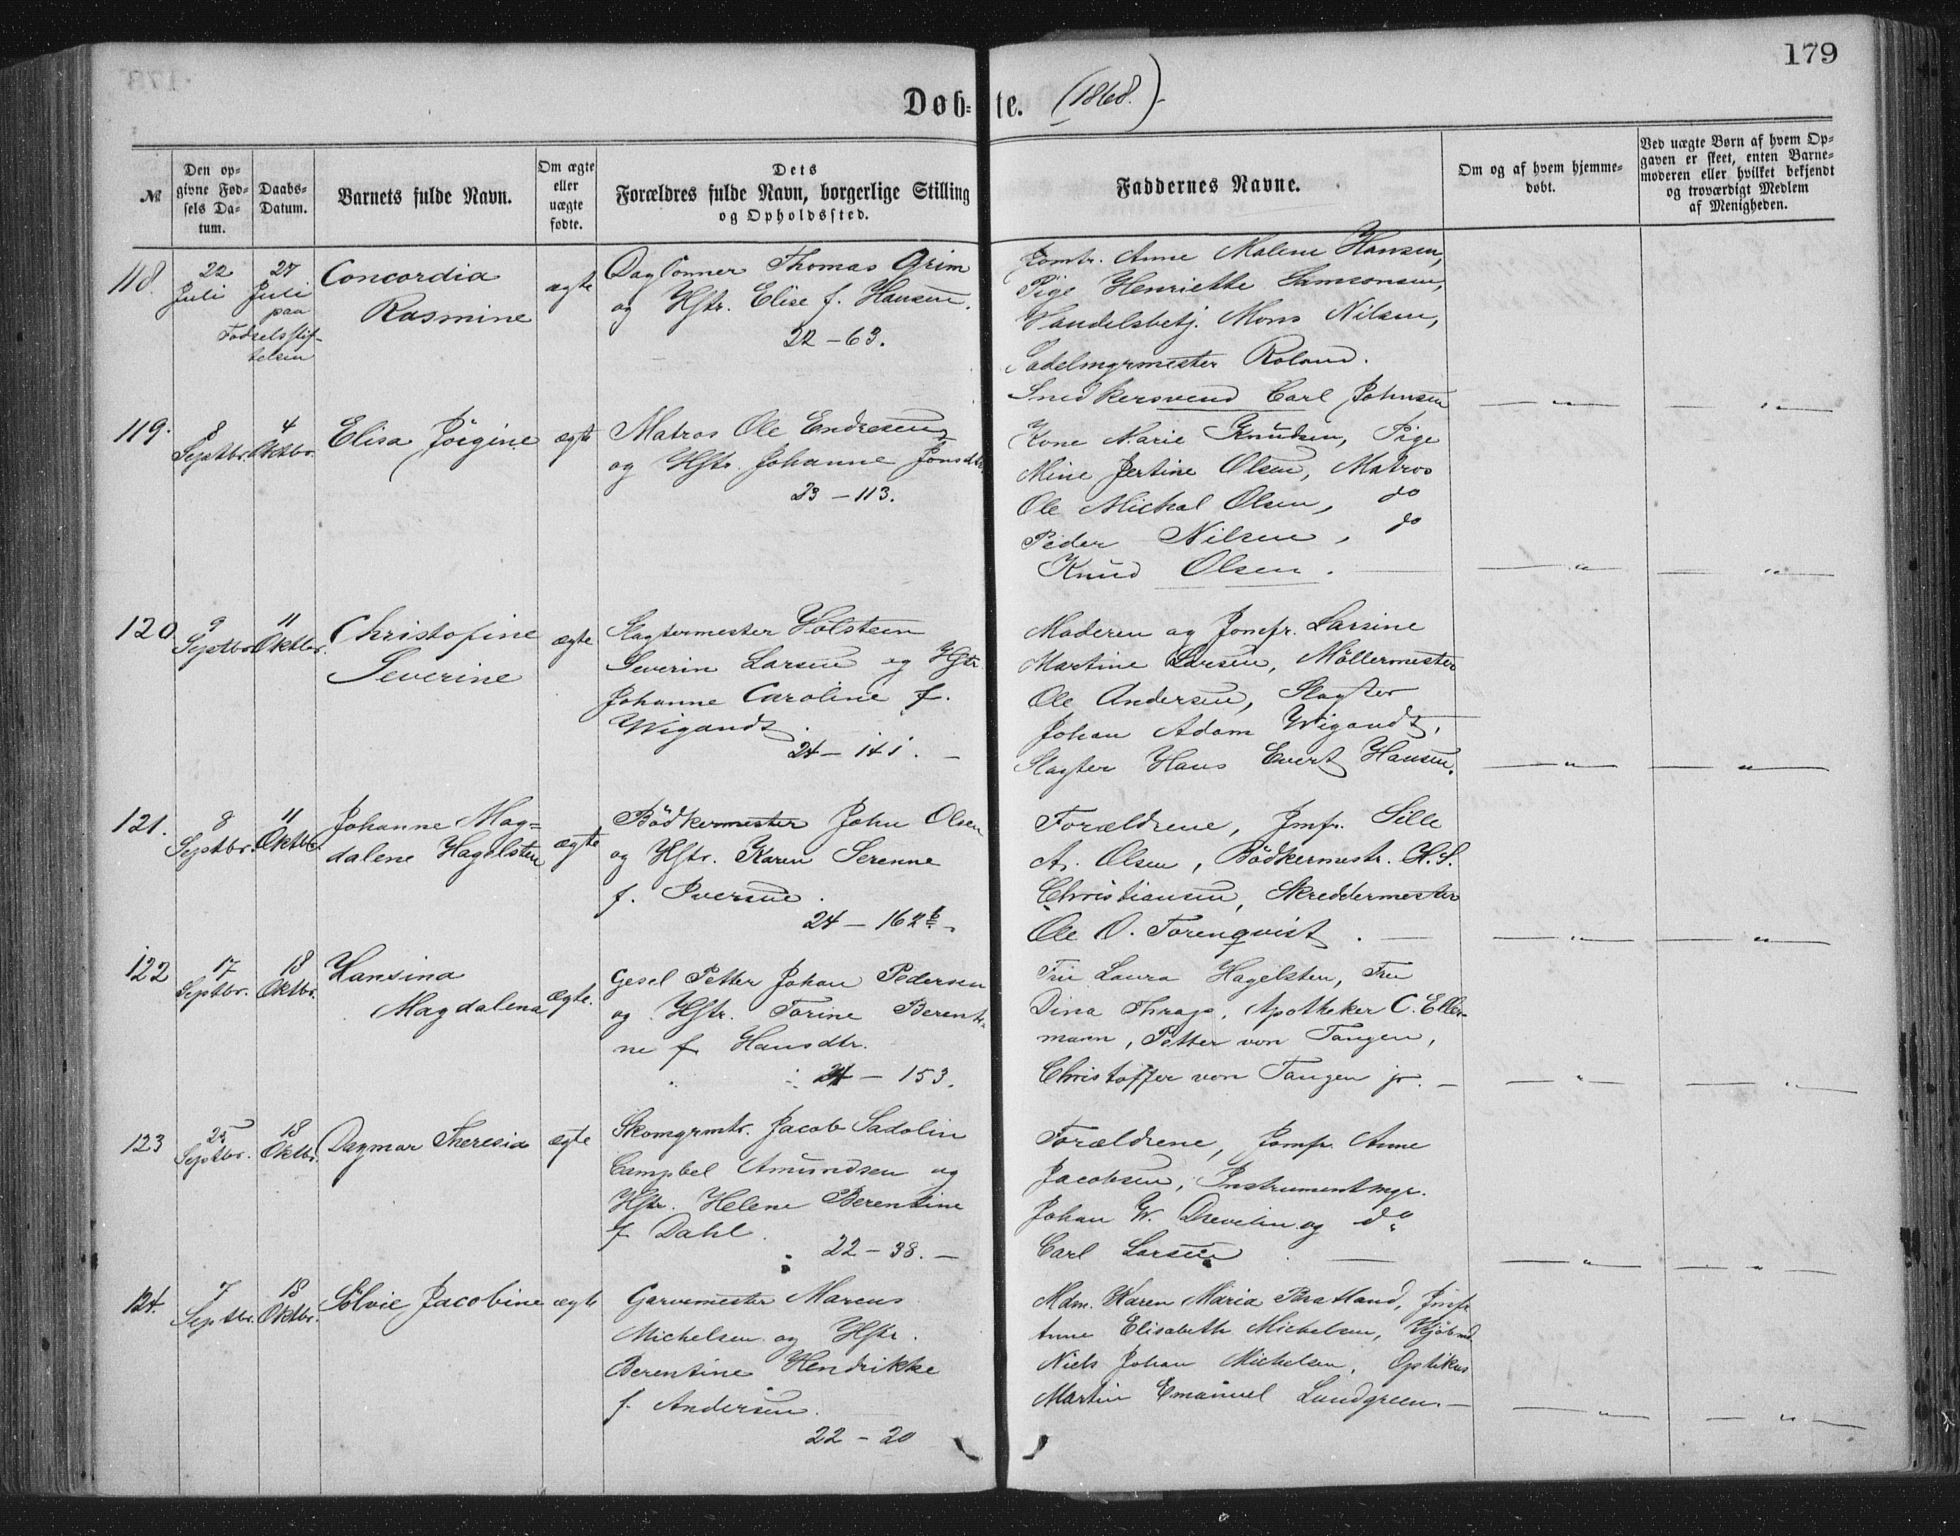 179
Døb-te. (1868.)
№
Den opgivne Fødsels Datum.
Daabs-Datum.
Barnets fulde Navn.
Om ægte eller uægte fødte.
Dets Forældres fulde Navn, borgerlige Stilling og Opholdssted.
Faddernes Navne.
Om og af hvem hjemmedøbt.
Ved uægte Børn af hvem Opgaven er skeet, enten Barnemoderen eller hvilket bekjendt og troværdigt Medlem af Menigheden.
118.
22 Juli
27 Juli paa Fødselsstiftelsen
Concordia
Rasmine
ægte
Daglönner Thomas Grim
og Hstr. Elise f. Hansen.
22-63.
Jomfr. Anne Malene Hansen,
Pige Henriette Samsonsen,
Handelsbetj. Mons Nilsen,
Sadelmgrmester Roland.
Snedkersvend Carl Johnsen
119.
8 Septbr.
4 Oktbr.
Elisa Jörgine
ægte
Matros Ole Endresen
og Hstr. Johanne Jonsdtr.
23-113.
Kone Marie Knudsen, Pige
Mine Jertine Olsen, Matros
Ole Michal Olsen, do
Peder Nilsen, do
Knud Olsen.
120
9 Septbr.
11 Oktbr.
Christofine
Severine
ægte
Slagtermester Holsteen
Severin Larsen og Hstr.
Johanne Caroline f.
Wigandt.
24-141.
Moderen og Jomfr. Larsine
Martine Larsen, Möllermester
Ole Andersen, Slagter
Johan Adam Wigandt,
Slagter Hans Evert Hansen.
121.
8 Septbr.
11 Oktbr.
Johanne Mag-
dalene Hagelsten
ægte
Bödkermester John Olsen
og Hstr. Karen Serenne
f. Iversen.
24-162 b
Forældrene, Jmfr. Sille
A. Olsen, Bödkermestr. H. S.
Christiansen, Skreddermester
Ole O. Torenqvist.
122
17 Septbr.
18 Oktbr.
Hansina
Magdalena
ægte.
Gesel Petter Johan Pedersen
og Hstr. Torine Berenti-
ne f. Hansdtr.
24-153.
Fru Laura Hagelsten, Fru
Dina Thrap, Apotheker C. Eller-
mann, Petter von Tangen,
Christoffer von Tangen jr.
123
25 Septbr.
18 Oktbr.
Dagmar Theresia
ægte
Skomgrmtr. Jacob Sadolin
Campbel Amundsen og
Hstr. Helene Berentine
f. Dahl.
22-38.
Forældrene, Jomfr. Anne
Jacobsen, Instrumentmgr.
Johan W. Drevelin og do
Carl Larsen
124.
7 Septbr.
18 Oktbr.
Sölvie Jacobine
ægte
Garvemester Marcus
Michelsen og Hstr.
Berentine Hendrikke
f. Andersen.
22-20
Mdm. Karen Maria Bratland, Jmfr.
Anne Elisabeth Michelsen, Kjöbmd
Niels Johan Michelsen, Optikus
Martin Emanuel Lundgreen.